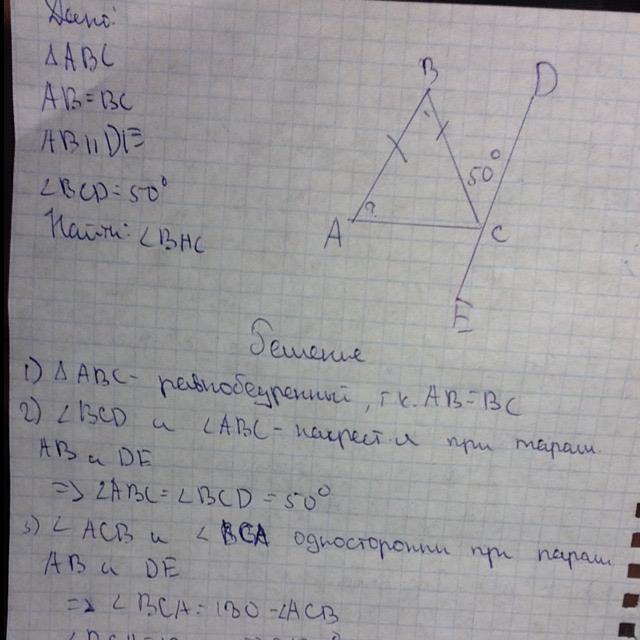 Дано:
ΔABC
AB=BC
AB||DE
∠BCD=50°
Найти: ∠BAC
B
D
50°
?
A
C
E
Решение
1) ΔABC - равнобедренный, т.к. AB=BC
2) ∠BCD и ∠ABC - накрест л при парал.
AB и DE
=> ∠ABC=∠BCD=50°
3) ∠ACB и ∠BCA односторонни при парал.
AB и DE
=> ∠BCA=180-∠ACB